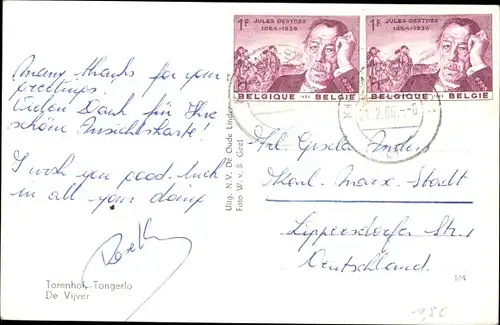 1F JULES DESTREE
1864-1936
BELGIQUE 1963 BELGIE
1F JULES DESTREE
1864-1936
BELGIQUE 1963 BELGIE
21.2.66.-8
Many thanks for your
greetings!
Vielen Dank für Ihre
schöne Ansichtskarte!
I wish you good luck
in all your doing
Torenhof, Tongerlo
De Vijver
Uitg. N.V. DE Oude Linden
Foto W. v. B Geel
Frl. Gisela Anders
Karl-Marx-Stadt
Lippersdorfer Str. 1
Deutschland.